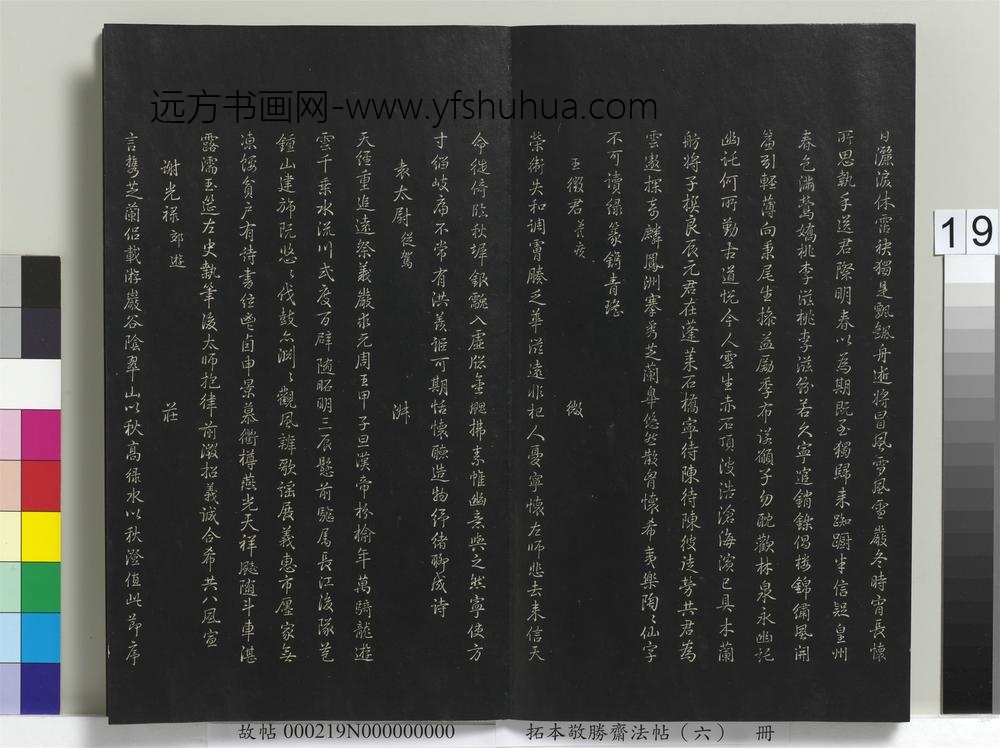 远方书画网-www.yfshuhua.com
日灑淚休霑袂獨是飄飆舟逝將冒風雪風雪嚴冬時宵長懷
所思執手送君際明春以為期既至獨歸來踟躕半信疑皇州
春色滿鶯嬌桃李滋桃李滋芬若久寧渲銷鑠偈接錦繡風開
篇引輕薄向秉尾生操益勵季布諾顧子勿耽歡林泉永幽託
幽託何所勤古道悅今人雲生赤石頂波浩滄海濱已具木蘭
舫將子撰良辰元君在蓬萊石橋寧待陳待陳彼徒勞共君為
雲遨探奇麟鳳洲搴秀芝蘭皐悠然散眘懷希夷樂陶〻仙字
不可讀綠篆鐫青瑤
王徵君 養疾 微
榮衛失和調霄勝乏華滋遠非杞人憂寧懷左師悲去來信天
命徒倚臨秋墀銀飄入虛牖垂 拂素帷幽意與之然寧使方
寸縚岐扁不常有洪羨詎可期恬懷聽造物紓緒聊成詩
袁太尉 從駕 淋
天經重追遠祭義嚴求元周王甲子旦漢帝枌榆年萬騎龍遊
雲千乘水流川式度百辟隨昭明三辰懸前驅屆長江後隊芭
鍾山建旆阮悠〻伐鼓亦淵〻觀風雜歌謠展義惠市廛家無
凍餒貧戶有待書位壼貞申景慕衢樽燕光天祥飈隨斗車湛
露濡玉筵左史執筆後太師抱律前激招義誠合希共八風宣
謝光祿 郊遊 莊
言攜芝蘭侶載游巖谷陰翠山以秋高綠水以秋澄值此節序
19
故帖 000219N000000000
拓本敬勝齋法帖（六） 冊